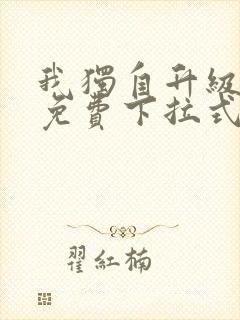 我獨自升級
免費下拉式
翟紅楠